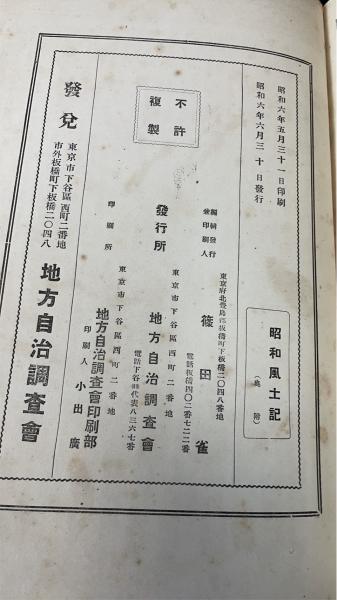 昭和六年五月三十一日印刷
昭和六年六月三十日發行
昭和風土記
不許
複製
編輯發行
兼印刷人
東京府北豊島郡板橋町下板橋二〇四八番地
篠田雀
電話板橋四〇二番七二二番
發行所
東京市下谷區西町二番地
地方自治調査會
印刷所
東京市下谷區西町二番地
地方自治調査會印刷部
印刷人 小出廣
發兌
東京市下谷區西町二番地
市外板橋町下板橋二〇四八
地方自治調査會